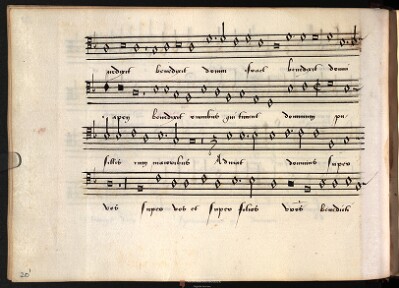 nedixit benedixit domui israel benedixit domui
benedixit omnibus qui timent dominum pu
sillis cum maioribus Adiciat dominus super
vos super vos et super filios vestros benedicti
20